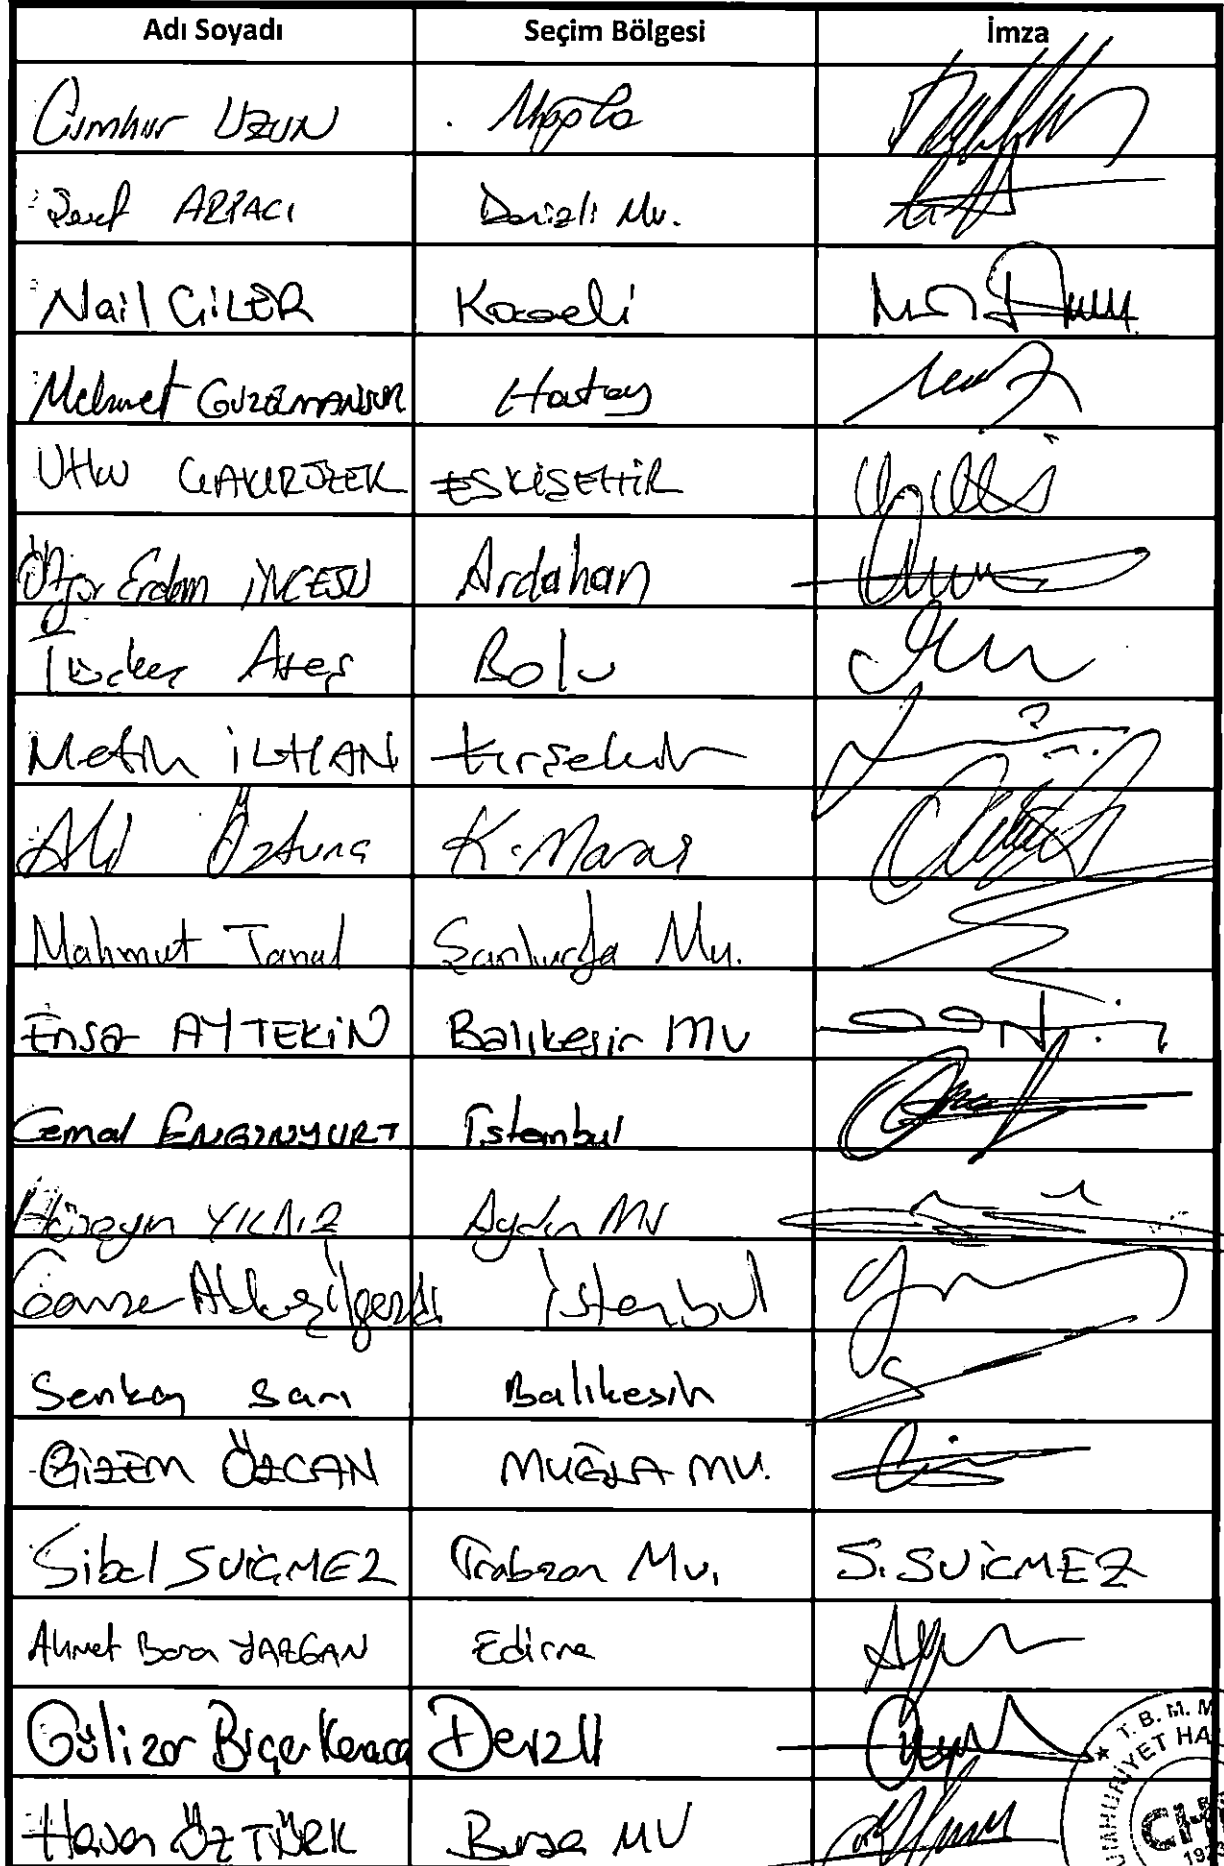 Adı Soyadı Seçim Bölgesi İmza
Cumhur UZUN Muğla
Şeref ARPACI Denizli Mv.
Nail ÇİLER Kocaeli
Mehmet GÜZELMANSUR Hatay
Utku ÇAKIRÖZER ESKİŞEHİR
Özgür Erdem İNCESU Ardahan
Türker Ateş Bolu
Metin İLHAN Kırşehir
Ali Öztunç K. Maraş
Mahmut Tanal Şanlıurfa Mv.
Ensar AYTEKİN Balıkesir MV
Cemal ENGİNYURT İstanbul
Hüseyin YILDIZ Aydın MV
Gamze Akkuş İlgezdi İstanbul
Serkan Sarı Balıkesir
GİZEM ÖZCAN MUĞLA MV.
Sibel SUİÇMEZ Trabzon Mv. S. SUİCMEZ
Ahmet Baran YAZGAN Edirne
Gülizar Biçer Karaca Denizli
Hasan ÖZTÜRK Bursa MV
T.B.M.M
CHP